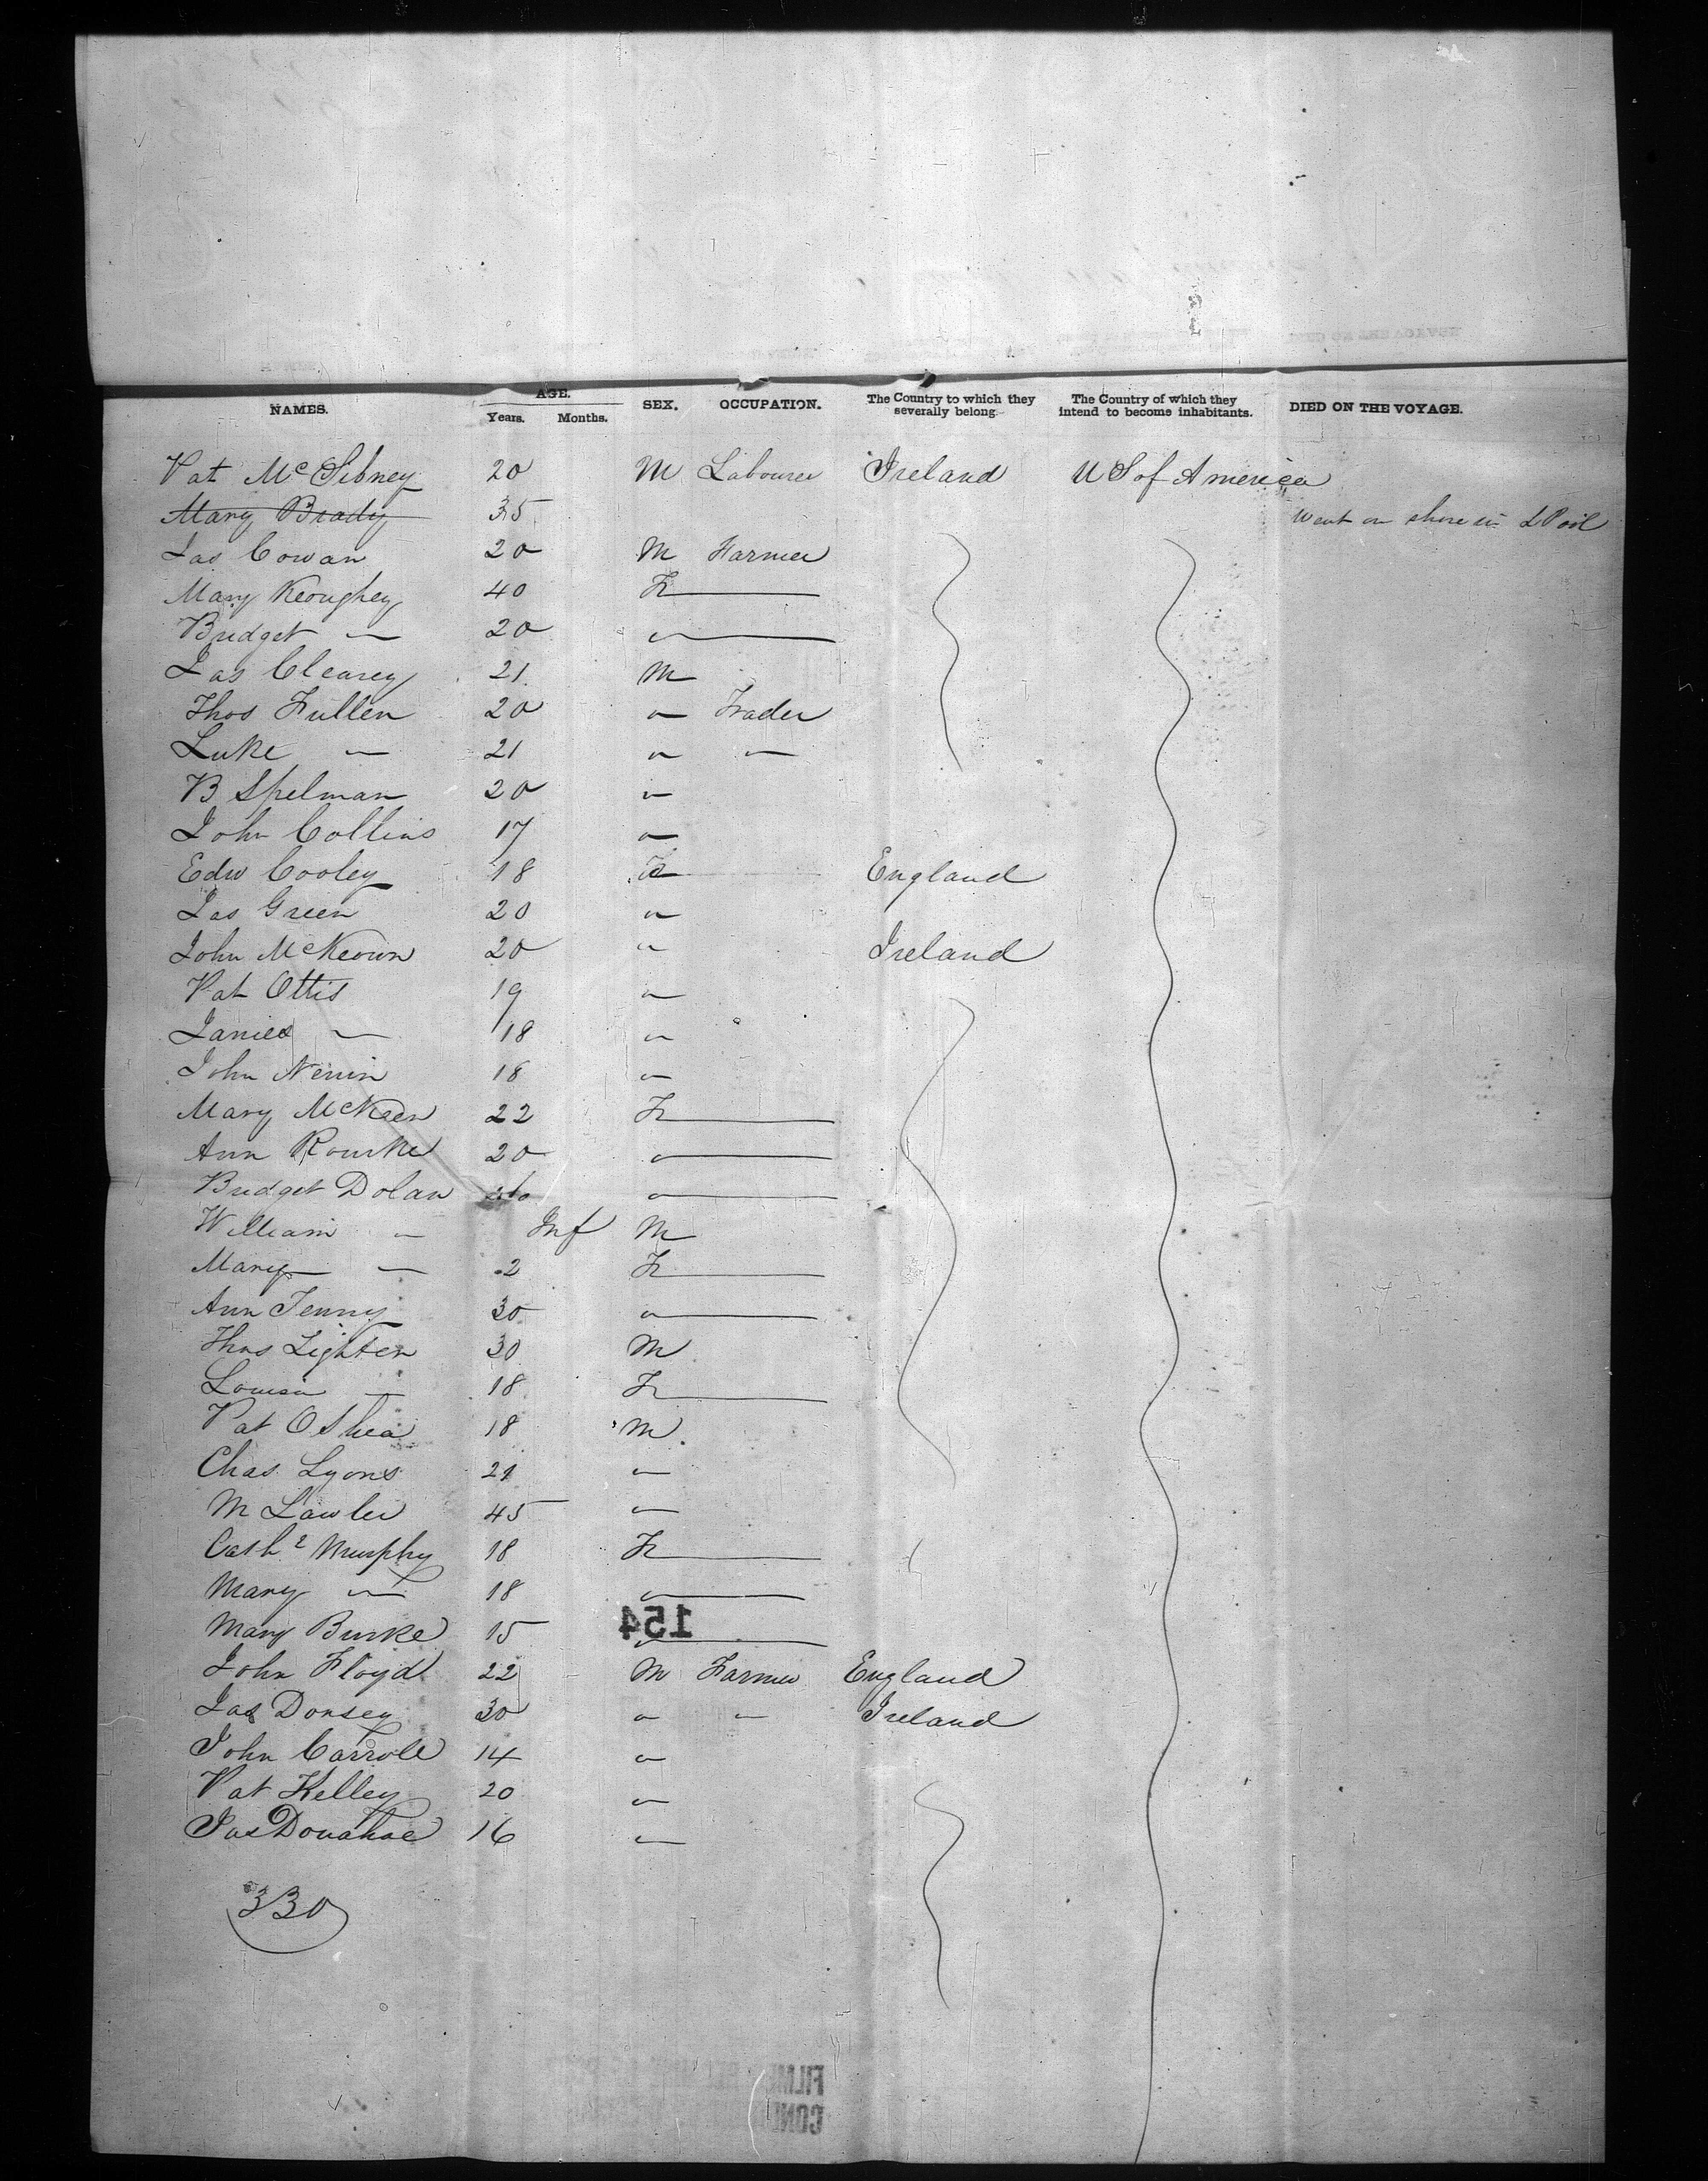 NAMES. AGE. Years. Months. SEX. OCCUPATION. The Country to which they severally belong. The Country of which they intend to become inhabitants. DIED ON THE VOYAGE.
Pat McGibney 20 M Labourer Ireland U S of America
Mary Brady 35 Went on shore in LPool
Jas Cowan 20 M Farmer
Mary Keoughey 40 F
Bridget — 20 "
Jas Clearey 21 M
Thos Fullen 20 " Trader
Luke — 21 " "
B Spelman 20 "
John Collins 17 "
Edw Cooley 18 England
Jas Green 20 "
John McKeown 20 " Ireland
Pat Ottis 19 "
James — 18 "
John Nevin 18 "
Mary McKeen 22 F
Ann Rourke 20 "
Bridget Dolan "
William — Inf M
Mary — 2 F
Ann Tenny 30 "
Thos Lighten 30 M
Louisa — 18 F
Pat OShea 18 M
Chas Lyons 21 "
M Lawler 45 "
Cathe Murphy 18 F
Mary — 18 "
154
Mary Burke 15 "
John Floyd 22 M Farmer England
Jas Dorsey 30 " " Ireland
John Carroll 14 "
Pat Kelley 20 "
Jas Donahoe 16 "
330